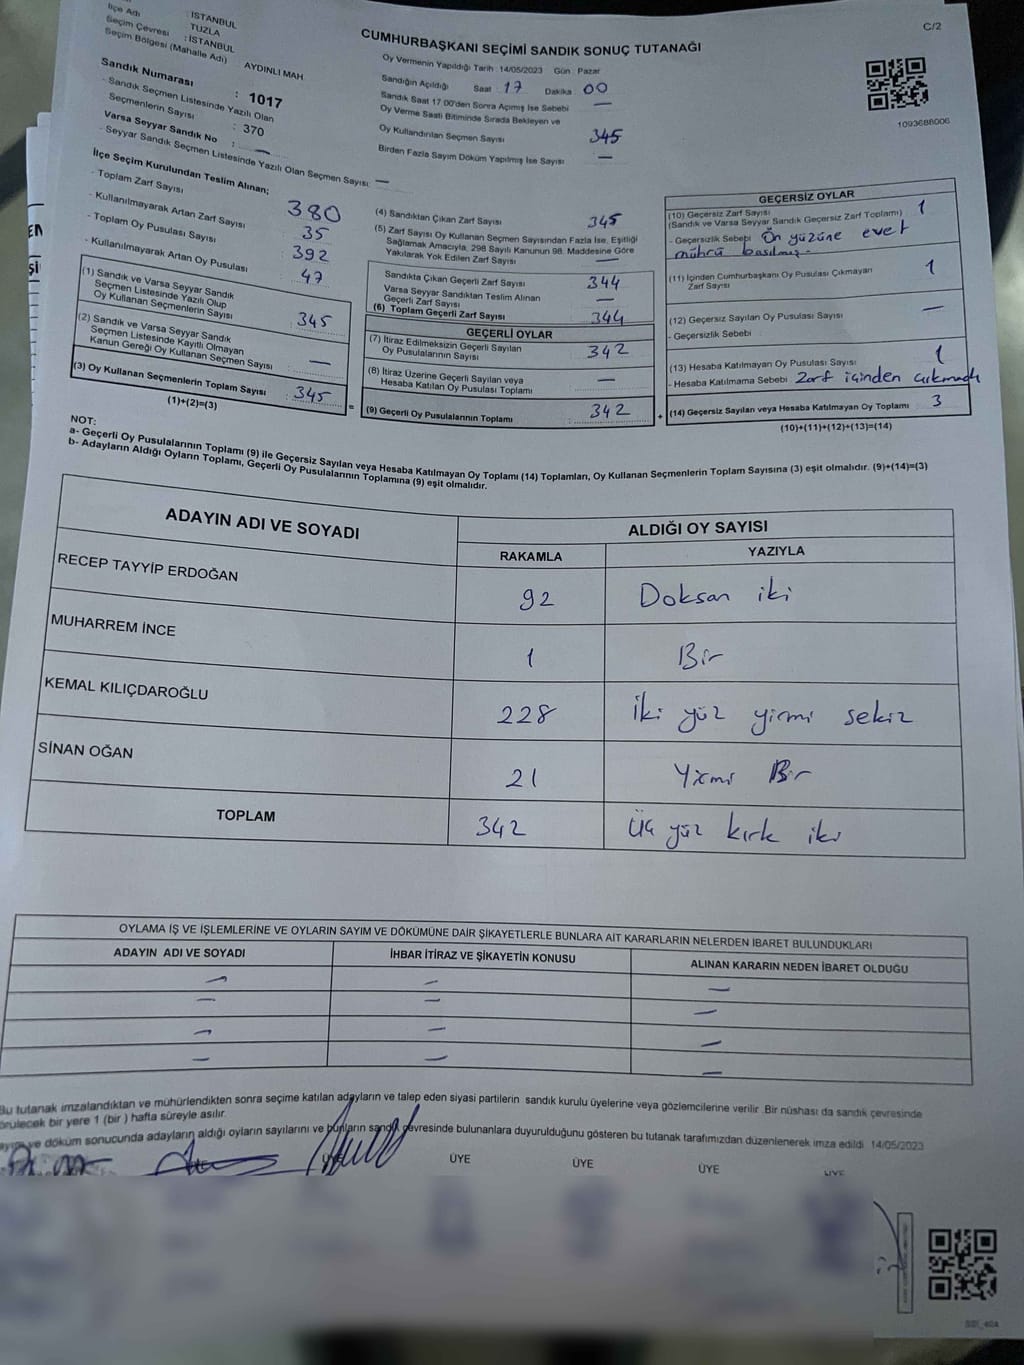 İlçe Adı : İSTANBUL
TUZLA
Seçim Çevresi : İSTANBUL
Seçim Bölgesi (Mahalle Adı) AYDINLI MAH.
CUMHURBAŞKANI SEÇİMİ SANDIK SONUÇ TUTANAĞI
C/2
Oy Vermenin Yapıldığı Tarih :14/05/2023 Gün : Pazar
Sandığın Açıldığı Saat 17 Dakika 00
Sandık Saat 17.00'den Sonra Açmış İse Sebebi —
Oy Verme Saati Bitiminde Sırada Bekleyen ve
Oy Kullandırılan Seçmen Sayısı 345
Birden Fazla Sayım Döküm Yapılmış İse Sayısı —
1093688006
Sandık Numarası : 1017
- Sandık Seçmen Listesinde Yazılı Olan
Seçmenlerin Sayısı : 370
Varsa Seyyar Sandık No : —
- Seyyar Sandık Seçmen Listesinde Yazılı Olan Seçmen Sayısı: —
İlçe Seçim Kurulundan Teslim Alınan;
- Toplam Zarf Sayısı 380
- Kullanılmayarak Artan Zarf Sayısı 35
- Toplam Oy Pusulası Sayısı 392
- Kullanılmayarak Artan Oy Pusulası 47
(1) Sandık ve Varsa Seyyar Sandık
Seçmen Listesinde Yazılı Olup
Oy Kullanan Seçmenlerin Sayısı : 345
(2) Sandık ve Varsa Seyyar Sandık
Seçmen Listesinde Kayıtlı Olmayan
Kanun Gereği Oy Kullanan Seçmen Sayısı : —
(3) Oy Kullanan Seçmenlerin Toplam Sayısı : 345 =
(1)+(2)=(3)
(4) Sandıktan Çıkan Zarf Sayısı 345
(5) Zarf Sayısı Oy Kullanan Seçmen Sayısından Fazla İse, Eşitliği
Sağlamak Amacıyla, 298 Sayılı Kanunun 98. Maddesine Göre
Yakılarak Yok Edilen Zarf Sayısı —
Sandıkta Çıkan Geçerli Zarf Sayısı 344
Varsa Seyyar Sandıktan Teslim Alınan
Geçerli Zarf Sayısı —
(6) Toplam Geçerli Zarf Sayısı 344
GEÇERLİ OYLAR
(7) İtiraz Edilmeksizin Geçerli Sayılan
Oy Pusulalarının Sayısı : 342
(8) İtiraz Üzerine Geçerli Sayılan veya
Hesaba Katılan Oy Pusulası Toplamı : —
(9) Geçerli Oy Pusulalarının Toplamı : 342 +
GEÇERSİZ OYLAR
(10) Geçersiz Zarf Sayısı
(Sandık ve Varsa Seyyar Sandık Geçersiz Zarf Toplamı) 1
- Geçersizlik Sebebi Ön yüzüne evet
mührü basılmış.
(11) İçinden Cumhurbaşkanı Oy Pusulası Çıkmayan
Zarf Sayısı 1
(12) Geçersiz Sayılan Oy Pusulası Sayısı —
- Geçersizlik Sebebi
(13) Hesaba Katılmayan Oy Pusulası Sayısı 1
- Hesaba Katılmama Sebebi Zarf içinden çıkmadı
(14) Geçersiz Sayılan veya Hesaba Katılmayan Oy Toplamı 3
(10)+(11)+(12)+(13)=(14)
NOT:
a- Geçerli Oy Pusulalarının Toplamı (9) ile Geçersiz Sayılan veya Hesaba Katılmayan Oy Toplamı (14) Toplamları, Oy Kullanan Seçmenlerin Toplam Sayısına (3) eşit olmalıdır. (9)+(14)=(3)
b- Adayların Aldığı Oyların Toplamı, Geçerli Oy Pusulalarının Toplamına (9) eşit olmalıdır.
ADAYIN ADI VE SOYADI ALDIĞI OY SAYISI
RAKAMLA YAZIYLA
RECEP TAYYİP ERDOĞAN 92 Doksan iki
MUHARREM İNCE 1 Bir
KEMAL KILIÇDAROĞLU 228 İki yüz yirmi sekiz
SİNAN OĞAN 21 Yirmi Bir
TOPLAM 342 Üç yüz kırk iki
OYLAMA İŞ VE İŞLEMLERİNE VE OYLARIN SAYIM VE DÖKÜMÜNE DAİR ŞİKAYETLERLE BUNLARA AİT KARARLARIN NELERDEN İBARET BULUNDUKLARI
ADAYIN ADI VE SOYADI İHBAR İTİRAZ VE ŞİKAYETİN KONUSU ALINAN KARARIN NEDEN İBARET OLDUĞU
— — —
— — —
— — —
— — —
Bu tutanak imzalandıktan ve mühürlendikten sonra seçime katılan adayların ve talep eden siyasi partilerin sandık kurulu üyelerine veya gözlemcilerine verilir .Bir nüshası da sandık çevresinde
görülecek bir yere 1 (bir ) hafta süreyle asılır.
ve döküm sonucunda adayların aldığı oyların sayılarını ve bunların sandık çevresinde bulunanlara duyurulduğunu gösteren bu tutanak tarafımızdan düzenlenerek imza edildi. 14/05/2023
ÜYE ÜYE ÜYE ÜYE